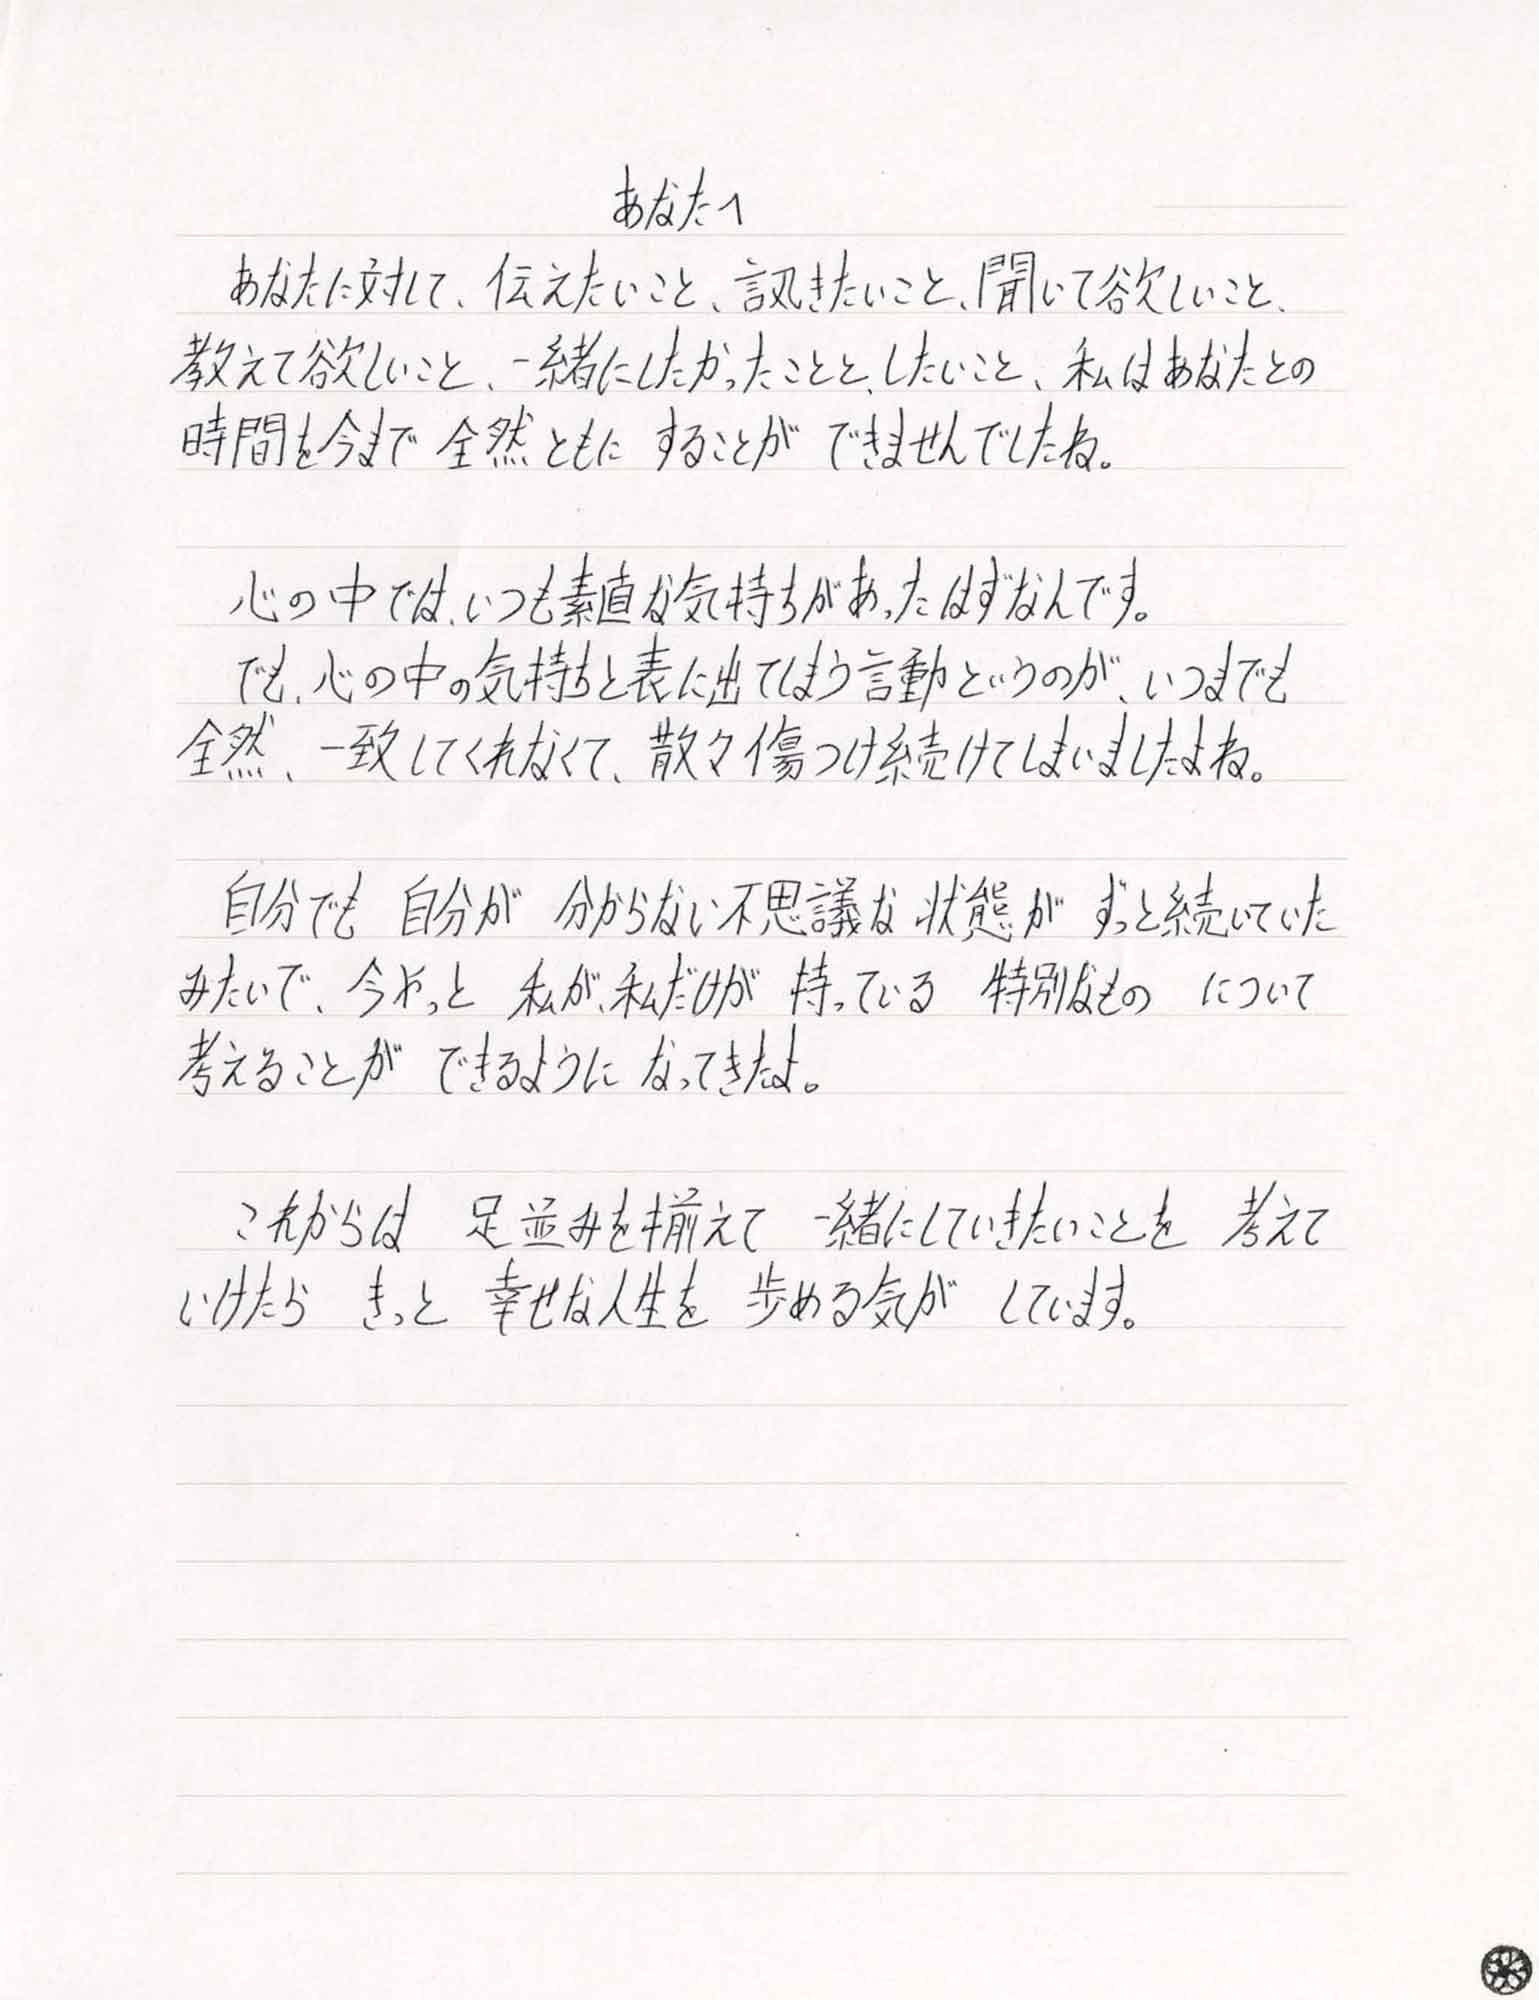 あなたへ
あなたに対して、伝えたいこと、訊きたいこと、聞いて欲しいこと、
教えて欲しいこと、一緒にしたかったことと、したいこと、私はあなたとの
時間を今まで 全然ともに することが できませんでしたね。
心の中では、いつも素直な気持ちがあったはずなんです。
でも、心の中の気持ちと表に出てしまう言動というのが、いつまでも
全然、一致してくれなくて、散々傷つけ続けてしまいましたよね。
自分でも 自分が 分からない不思議な 状態が ずっと続いていた
みたいで、今やっと 私が、私だけが 持っている 特別なもの について
考えることが できるように なってきたよ。
これからは 足並みを揃えて 一緒にしていきたいことを 考えて
いけたら きっと 幸せな人生を 歩める気が しています。